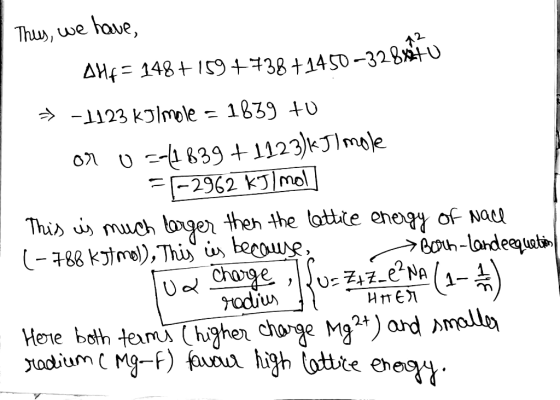 Thus, we have,
ΔHf = 148 + 159 + 738 + 1450 - 328×2 + U
⇒ -1123 kJ/mole = 1839 + U
or U = -(1839 + 1123) kJ/mole
= -2962 kJ/mol
This is much larger then the lattice energy of NaCl
(-788 kJ/mol), This is because,
→ Born-Lande equation
U ∝ charge/radius, { U = Z+Z-e²NA/4πεr (1 - 1/n)
Here both terms (higher charge Mg²⁺) and smaller
radium (Mg-F) favour high lattice energy.